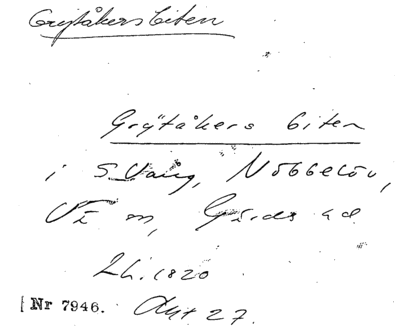 Grÿtåkersbiten
Grÿtåkers biten
i S. Vång, Nöbbelöv,
Vä sn, Gärds hd
Lh. 1820
Nr 7946. Akt 27.